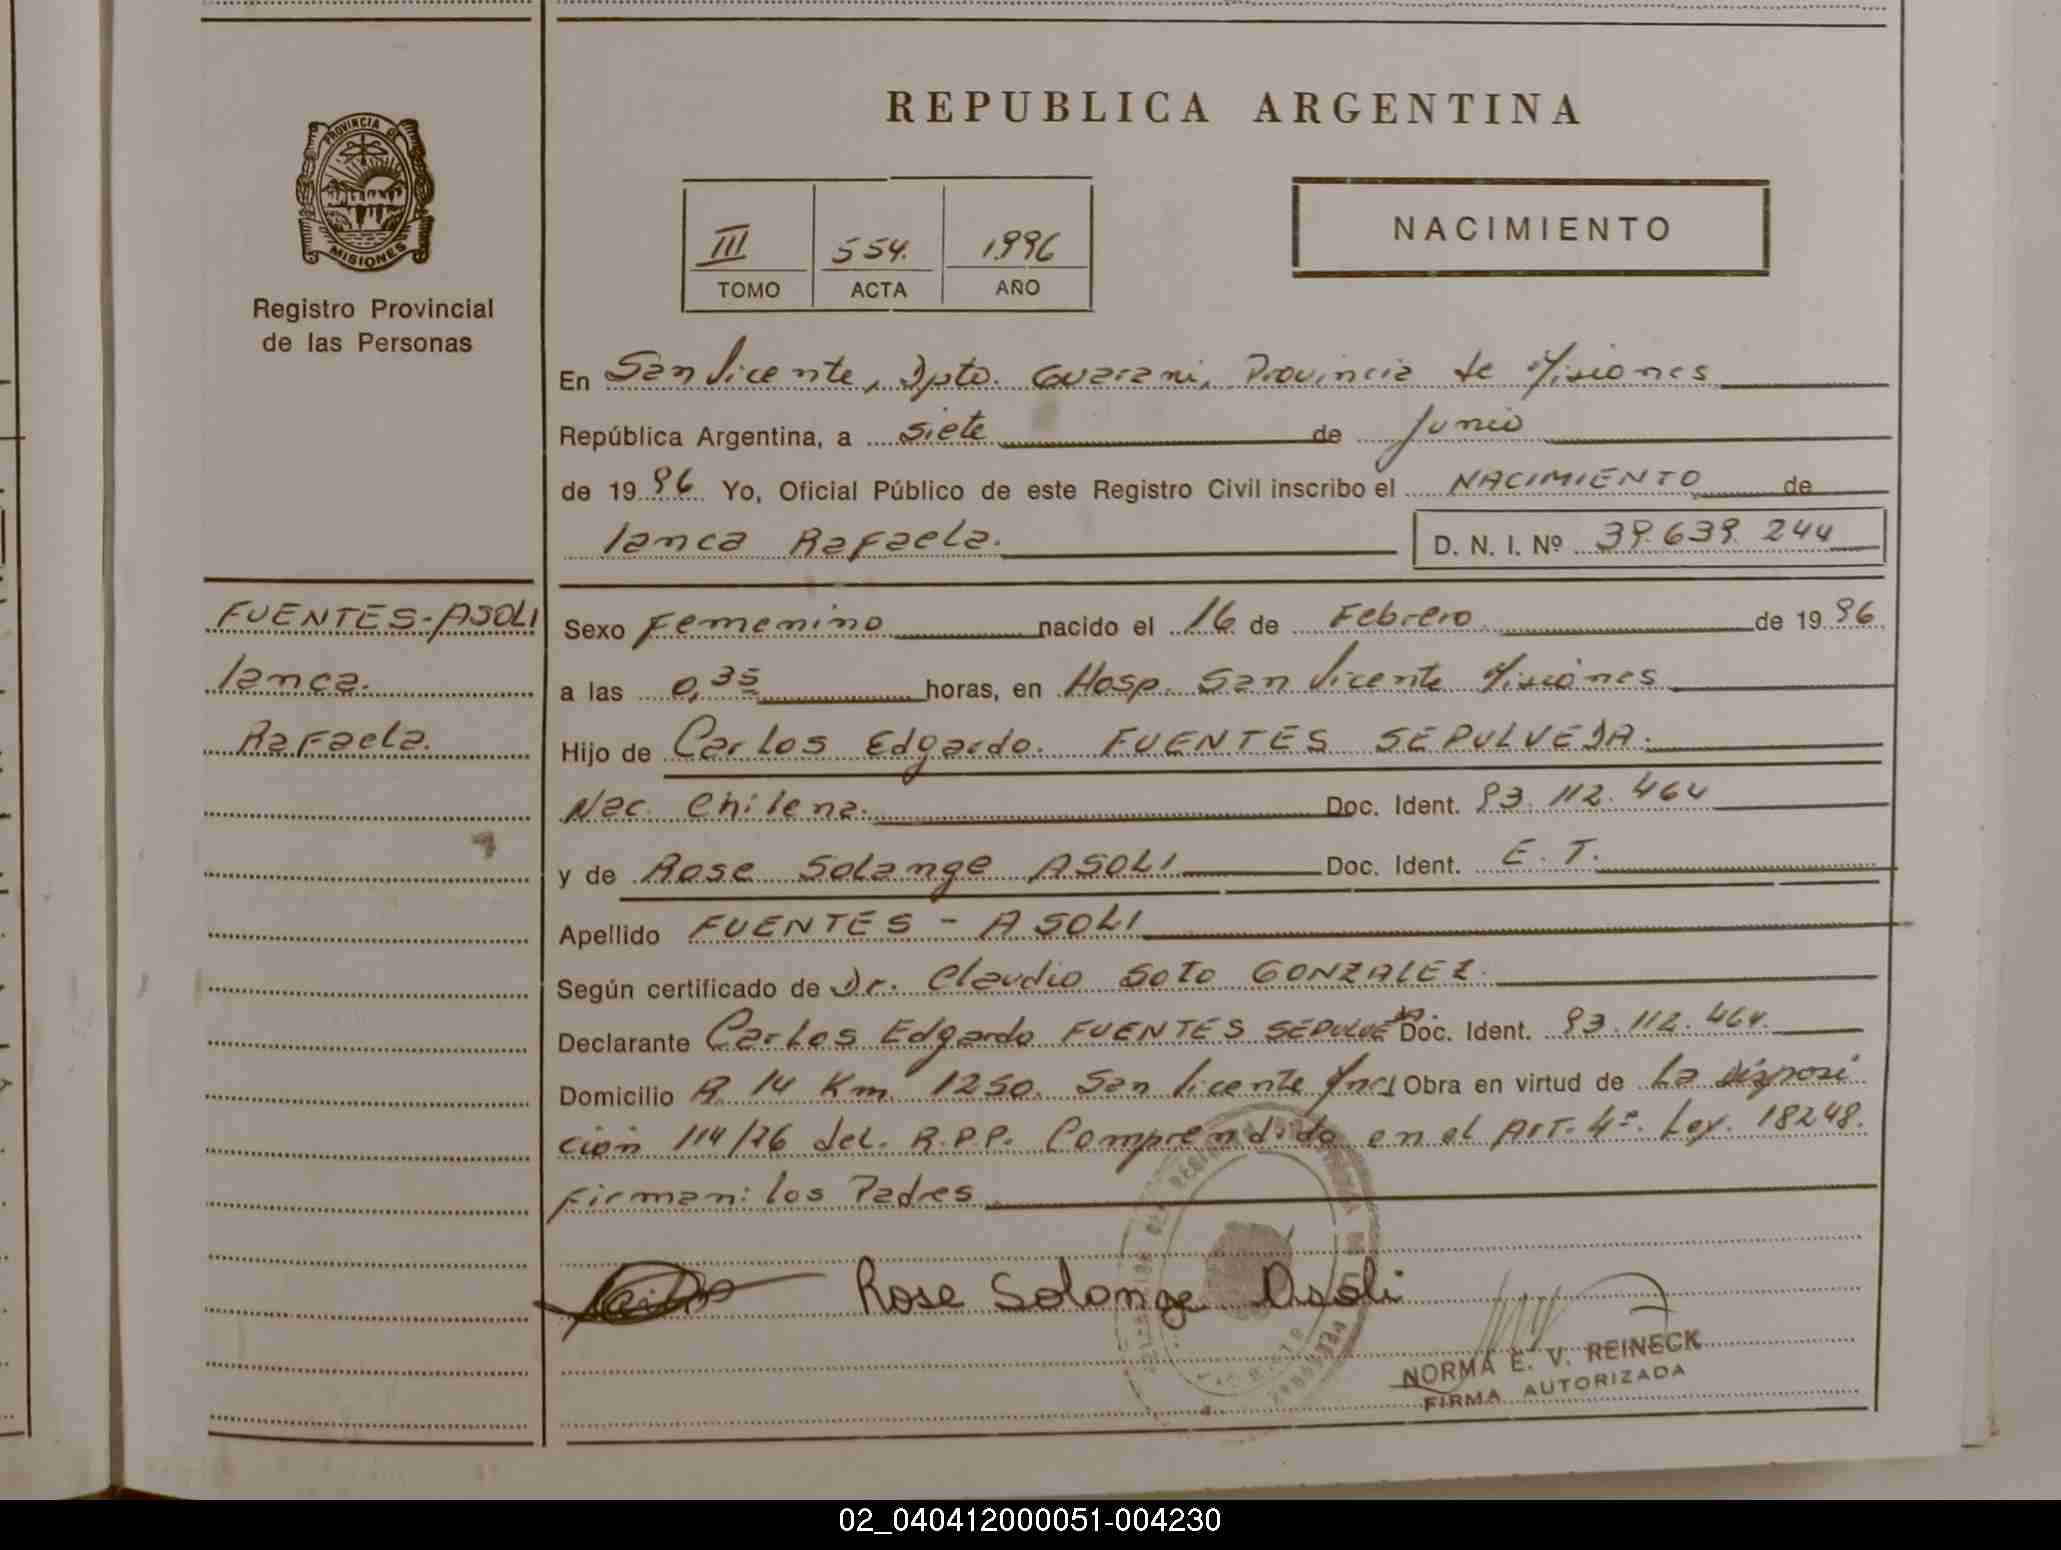 REPUBLICA ARGENTINA
PROVINCIA DE
MISIONES
Registro Provincial
de las Personas
III 554. 1996
TOMO ACTA AÑO
NACIMIENTO
En San Vicente, Dpto. Guarani, Provincia de Misiones
República Argentina, a siete de Junio
de 1996 Yo, Oficial Público de este Registro Civil inscribo el NACIMIENTO de
Ianca Rafaela.
D. N. I. Nº 39.639.244
FUENTES-ASOLI
Ianca.
Rafaela.
Sexo Femenino nacido el 16 de Febrero de 1996
a las 0,35 horas, en Hosp. San Vicente Misiones
Hijo de Carlos Edgardo. FUENTES SEPULVEDA.
Nac. Chilena. Doc. Ident. 93.112.464
y de Rose Solange ASOLI Doc. Ident. E. T.
Apellido FUENTES - ASOLI
Según certificado de Dr. Claudio Soto GONZALEZ.
Declarante Carlos Edgardo FUENTES SEPULVEDA. Doc. Ident. 93.112.464.
Domicilio R 14 Km 1250. San Vicente Mnes Obra en virtud de La disposi
ción 114/76 del. R.P.P. Comprendido en el Art. 4º. Ley. 18248.
Firman: los Padres
Rose Solange Asoli
NORMA E. V. REINECK
FIRMA AUTORIZADA
02_040412000051-004230